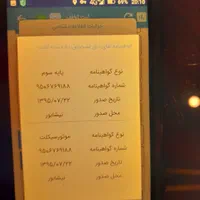 20:18
نوع گواهینامه پایه سوم
شماره گواهینامه ۹۵۰۶۷۶۹۱۸۸
تاریخ صدور ۱۳۹۵/۰۷/۲۲
محل صدور نیشابور
نوع گواهینامه موتورسیکلت
شماره گواهینامه ۹۵۰۶۷۶۹۱۸۸
تاریخ صدور ۱۳۹۵/۰۷/۲۲
محل صدور نیشابور